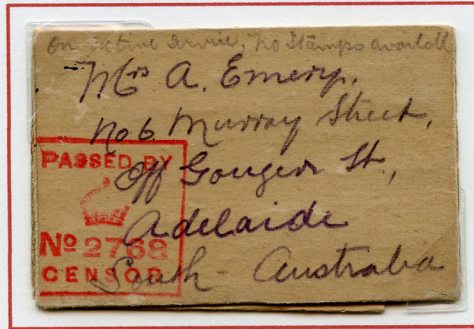 On active Service, no Stamps availabl
Mrs A. Emery,
No 6 Murray Street,
Off Gouger St,
Adelaide
South Australia
PASSED BY
No 2768
CENSOR